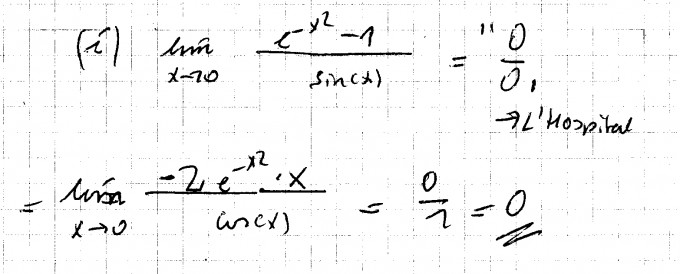 (i) lim x→0 (e^(-x²) - 1)/(sin(x)) = "0/0"
→ L'Hospital
= lim x→0 (-2 e^(-x²) · x)/(cos(x)) = 0/1 = 0